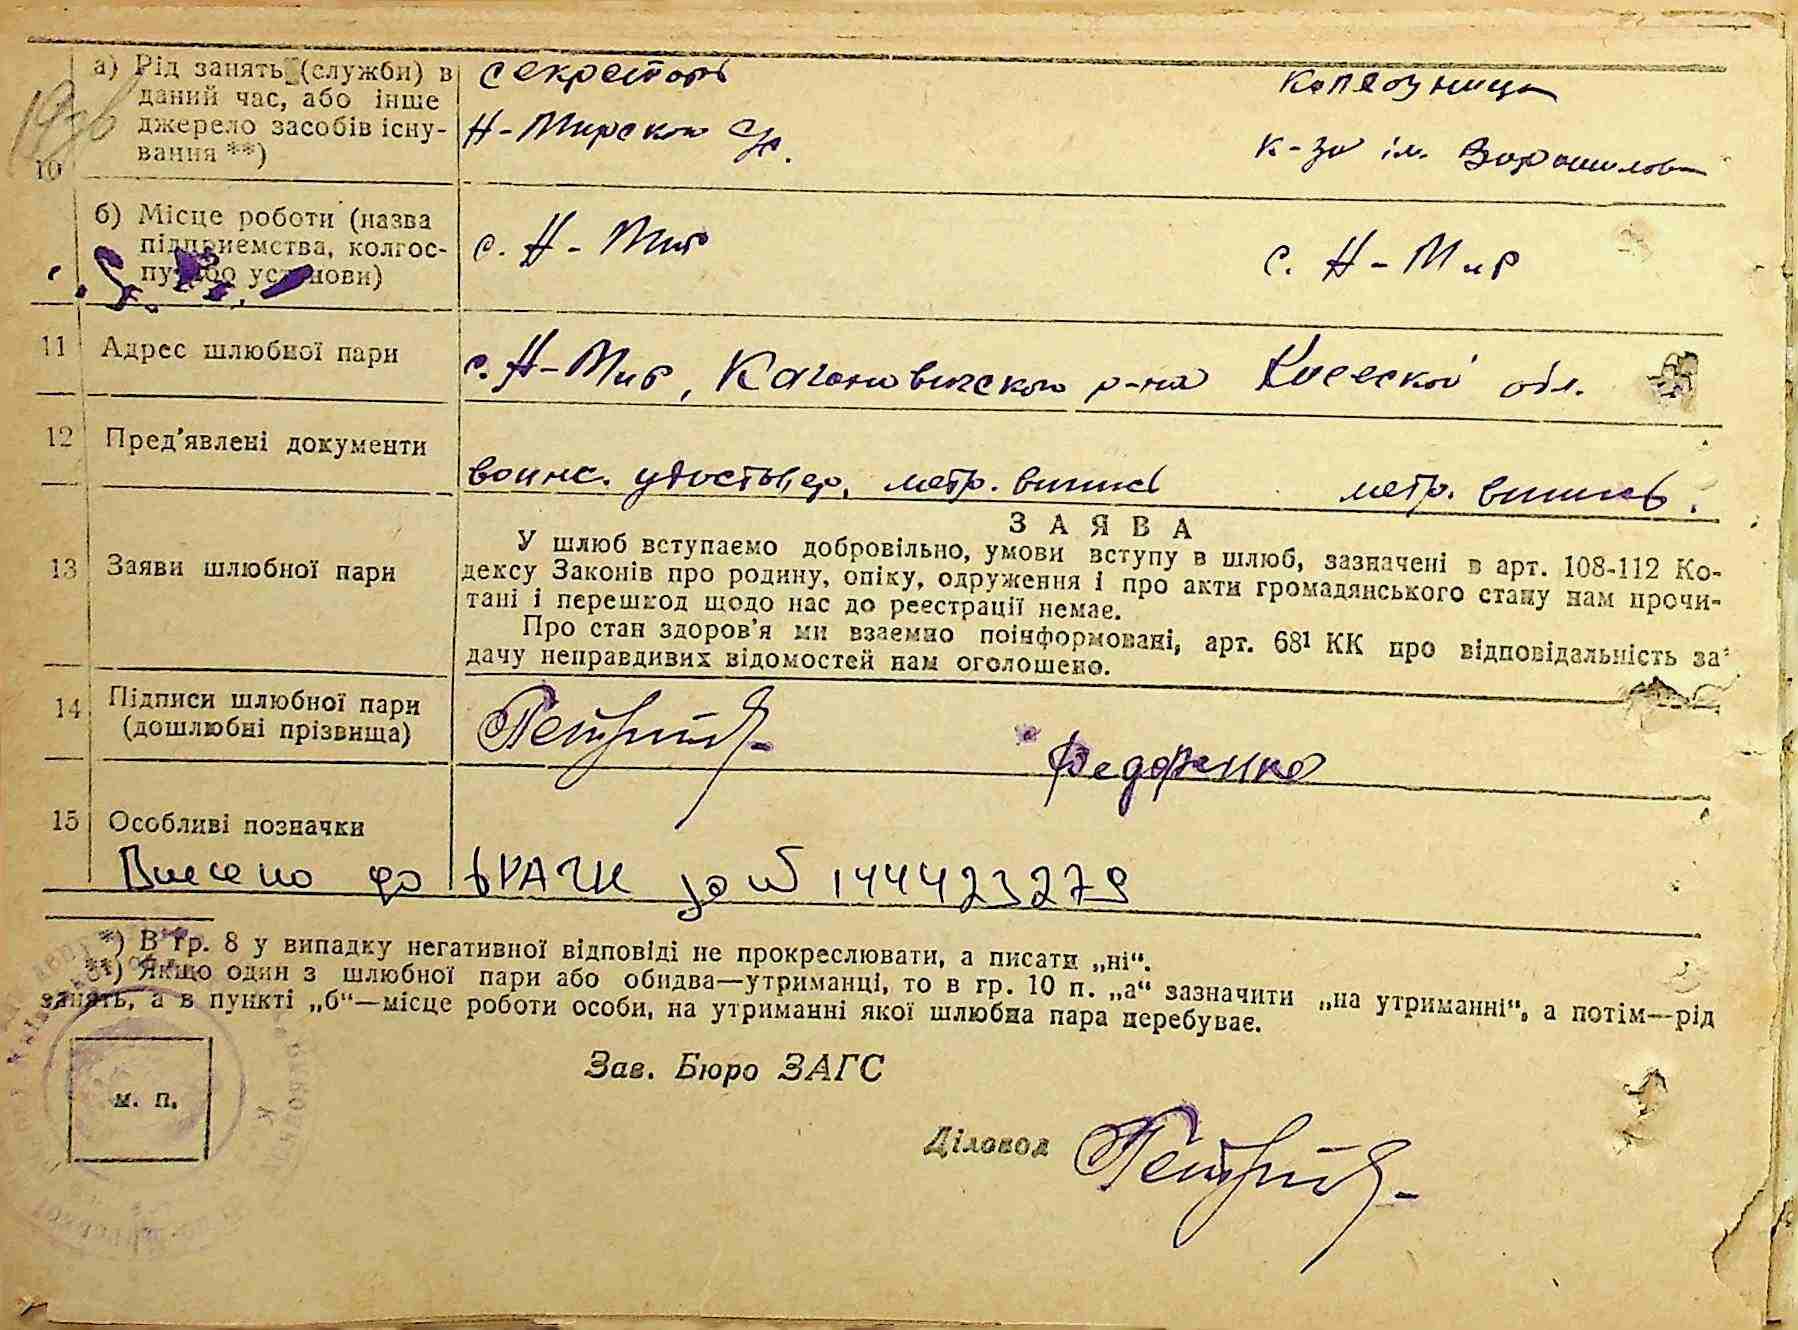 а) Рід занять (служби) в даний час, або інше джерело засобів існування **)
секретарь
Н-Мирской с/с.
колгозница
к-за ім. Ворошилова
10
б) Місце роботи (назва підприємства, колгоспу або установи)
с. Н-Мир
с. Н-Мир
11 Адрес шлюбної пари
с. Н-Мир, Кагановичского р-на Киевской обл.
12 Пред'явлені документи
воинс. удостовер. метр. выпись
метр. выпись.
13 Заяви шлюбної пари
ЗАЯВА
У шлюб вступаємо добровільно, умови вступу в шлюб, зазначені в арт. 108-112 Ко-
дексу Законів про родину, опіку, одруження і про акти громадянського стану нам прочи-
тані і перешкод щодо нас до реестрації немає.
Про стан здоров'я ми взаємно поінформовані, арт. 68¹ КК про відповідальність за
дачу неправдивих відомостей нам оголошено.
14 Підписи шлюбної пари
(дошлюбні прізвища)
Федоренко
15 Особливі позначки
Внесено до ДРАЦС за № 144423279
*) В гр. 8 у випадку негативної відповіді не прокреслювати, а писати „ні“.
**) Якщо один з шлюбної пари або обидва—утриманці, то в гр. 10 п. „а“ зазначити „на утриманні“, а потім—рід
занять, а в пункті „б“—місце роботи особи, на утриманні якої шлюбна пара перебуває.
Зав. Бюро ЗАГС
м. п.
Діловод